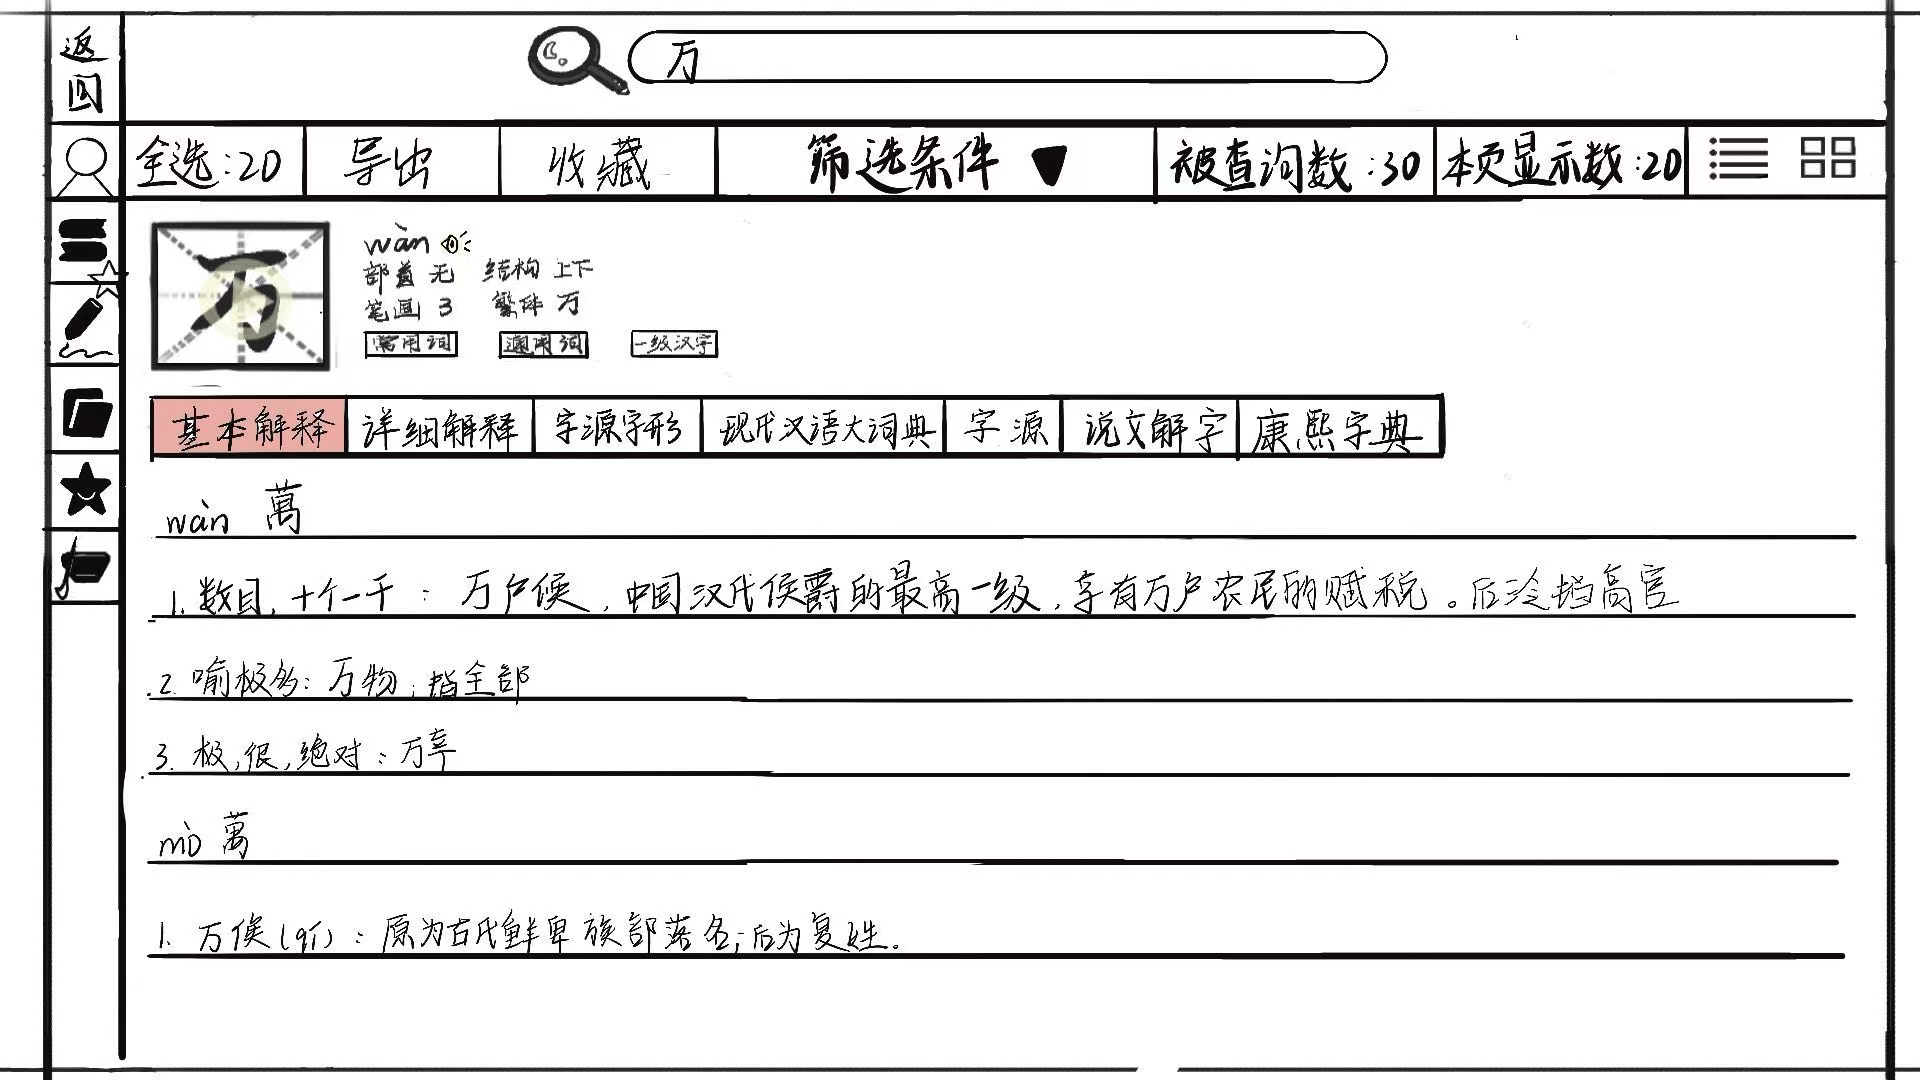 返
回
万
全选:20 导出 收藏 筛选条件 被查词数:30 本页显示数:20
万
wàn
部首 无 结构 上下
笔画 3 繁体 万
常用词 通用词 一级汉字
基本解释 详细解释 字源字形 现代汉语大词典 字源 说文解字 康熙字典
wàn 萬
1. 数目,十个一千:万户侯,中国汉代侯爵的最高一级,享有万户农民的赋税。后泛指高官
2. 喻极多:万物;指全部
3. 极,很,绝对:万幸
mò 萬
1. 万俟(qí):原为古代鲜卑族部落名;后为复姓.